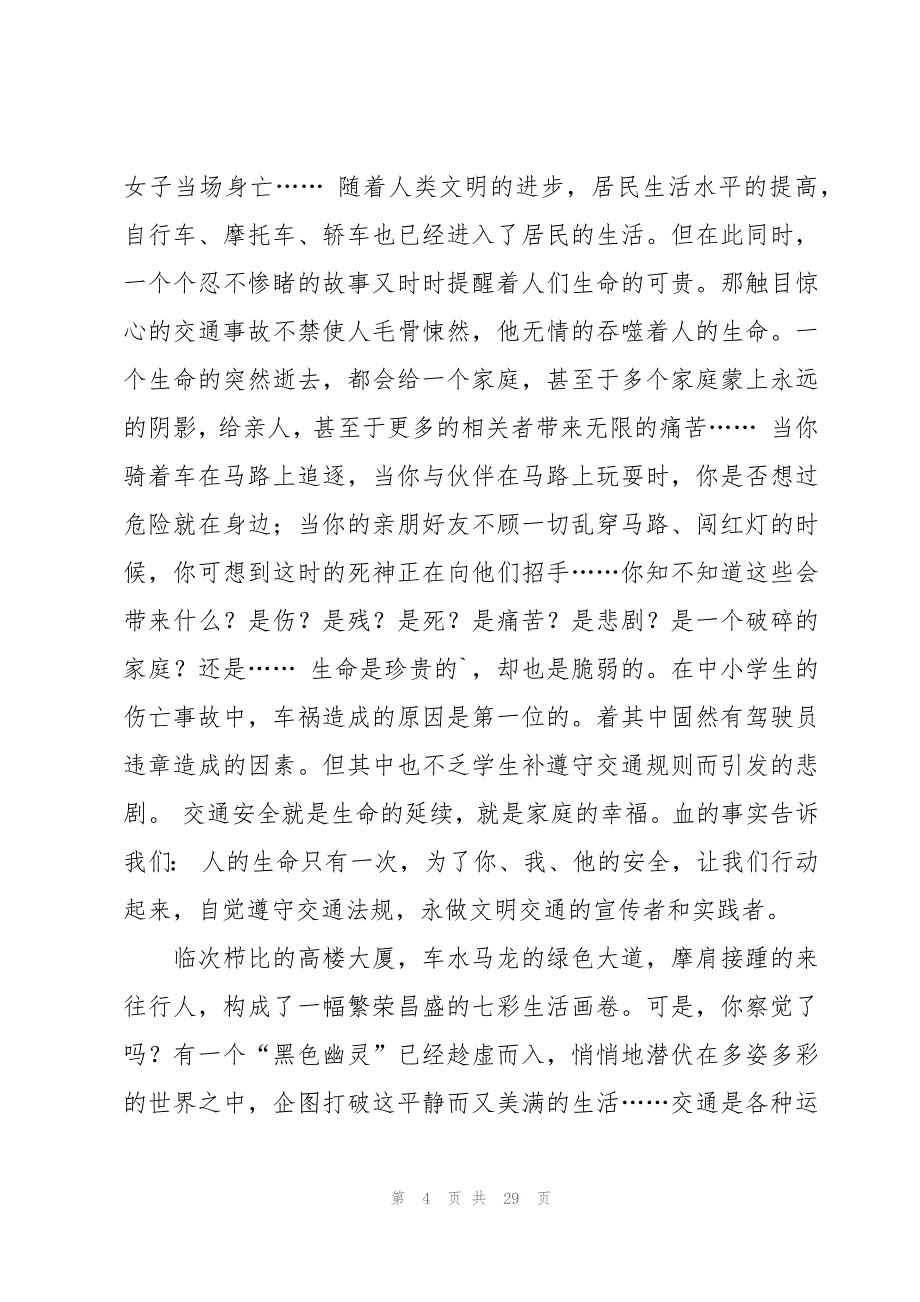 女子当场身亡…… 随着人类文明的进步，居民生活水平的提高，
自行车、摩托车、轿车也已经进入了居民的生活。但在此同时，
一个个忍不惨睹的故事又时时提醒着人们生命的可贵。那触目惊
心的交通事故不禁使人毛骨悚然，他无情的吞噬着人的生命。一
个生命的突然逝去，都会给一个家庭，甚至于多个家庭蒙上永远
的阴影，给亲人，甚至于更多的相关者带来无限的痛苦…… 当你
骑着车在马路上追逐，当你与伙伴在马路上玩耍时，你是否想过
危险就在身边；当你的亲朋好友不顾一切乱穿马路、闯红灯的时
候，你可想到这时的死神正在向他们招手……你知不知道这些会
带来什么？是伤？是残？是死？是痛苦？是悲剧？是一个破碎的
家庭？还是…… 生命是珍贵的`，却也是脆弱的。在中小学生的
伤亡事故中，车祸造成的原因是第一位的。着其中固然有驾驶员
违章造成的因素。但其中也不乏学生补遵守交通规则而引发的悲
剧。 交通安全就是生命的延续，就是家庭的幸福。血的事实告诉
我们： 人的生命只有一次，为了你、我、他的安全，让我们行动
起来，自觉遵守交通法规，永做文明交通的宣传者和实践者。
临次栉比的高楼大厦，车水马龙的绿色大道，摩肩接踵的来
往行人，构成了一幅繁荣昌盛的七彩生活画卷。可是，你察觉了
吗？有一个“黑色幽灵”已经趁虚而入，悄悄地潜伏在多姿多彩
的世界之中，企图打破这平静而又美满的生活……交通是各种运
第 4 页 共 29 页